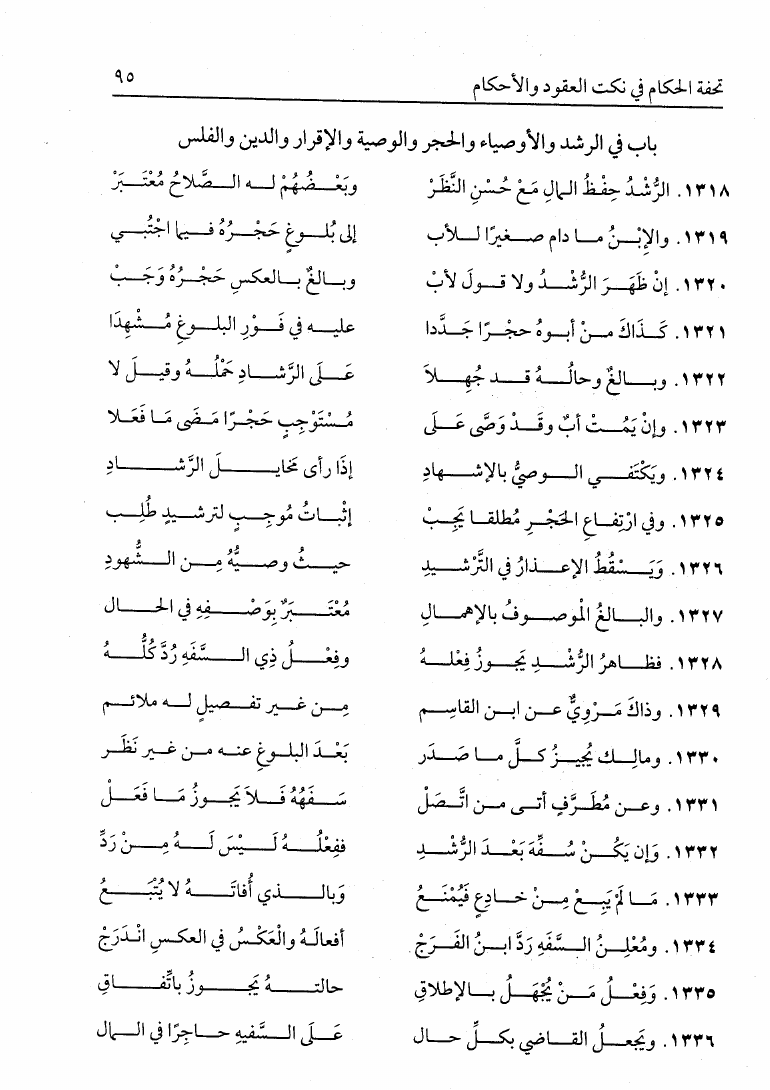 تحفة الحكام في نكت العقود والأحكام ٩٥
باب في الرشد والأوصياء والحجر والوصية والإقرار والدين والفلس
١٣١٨. الرُّشْدُ حِفْظُ المالِ مَعْ حُسْنِ النَّظَرْ وبَعْضُهُمْ له الصَّلاحُ مُعْتَبَرْ
١٣١٩. والإبْنُ ما دام صغيرًا للأب إلى بُلوغٍ حَجْرُهُ فيما اجْتُبي
١٣٢٠. إنْ ظَهَرَ الرُّشْدُ ولا قولَ لأبْ وبالغٌ بالعكسِ حَجْرُهُ وَجَبْ
١٣٢١. كَذَاكَ منْ أبوهُ حجرًا جَدَّدا عليه في فَوْرِ البلوغِ مُشْهِدَا
١٣٢٢. وبالغٌ وحالُهُ قد جُهِلاَ عَلَى الرَّشادِ حَمْلُهُ وقيلَ لا
١٣٢٣. وإنْ يَمُتْ أبٌ وقَدْ وَصَّى عَلَى مُسْتَوْجِبٍ حَجْرًا مَضَى مَا فَعَلا
١٣٢٤. ويَكْتَفي الوصيُّ بالإشهادِ إذَا رأى مَخايلَ الرَّشادِ
١٣٢٥. وفي ارْتِفاعِ الحَجْرِ مُطلقا يَجِبْ إثْباتُ مُوجِبٍ لترشيدٍ طُلِب
١٣٢٦. وَيَسْقُطُ الإعذارُ في التَّرْشيدِ حيثُ وصيُّهُ مِن الشُّهودِ
١٣٢٧. والبالغُ الموصوفُ بالإهمالِ مُعْتَبَرٌ بوَصْفِهِ في الحَال
١٣٢٨. فظاهرُ الرُّشْدِ يَجوزُ فِعْلهُ وفِعْلُ ذِي السَّفَهِ رُدَّ كُلُّهُ
١٣٢٩. وذاكَ مَرْوِيٌّ عن ابن القاسِم مِن غير تفصيلٍ له ملائم
١٣٣٠. ومالِك يُجيزُ كلَّ ما صَدَر بَعْدَ البلوغِ عنه من غير نَظَر
١٣٣١. وعن مُطَرَّفٍ أتى من اتَّصَلْ سَفَهُهُ فَلاَ يَجوزُ مَا فَعَلْ
١٣٣٢. وَإن يَكُنْ سُفِّهَ بَعْدَ الرُّشْدِ ففِعْلُهُ لَيْسَ لَهُ مِنْ رَدِّ
١٣٣٣. مَا لَمْ يَبِعْ مِنْ خادِعٍ فَيُمْنَعُ وَبالذي أفاتَهُ لا يُتْبَعُ
١٣٣٤. ومُعْلِنُ السَّفَهِ رَدَّ ابنُ الفَرَجْ أفعالَهُ والْعَكْسُ في العكسِ انْدَرَجْ
١٣٣٥. وَفِعْلُ مَنْ يُجْهَلُ بالإطلاقِ حالتهُ يَجوزُ باتِّفاقِ
١٣٣٦. ويَجعلُ القاضي بكلِّ حال عَلَى السَّفيهِ حاجرًا في المال